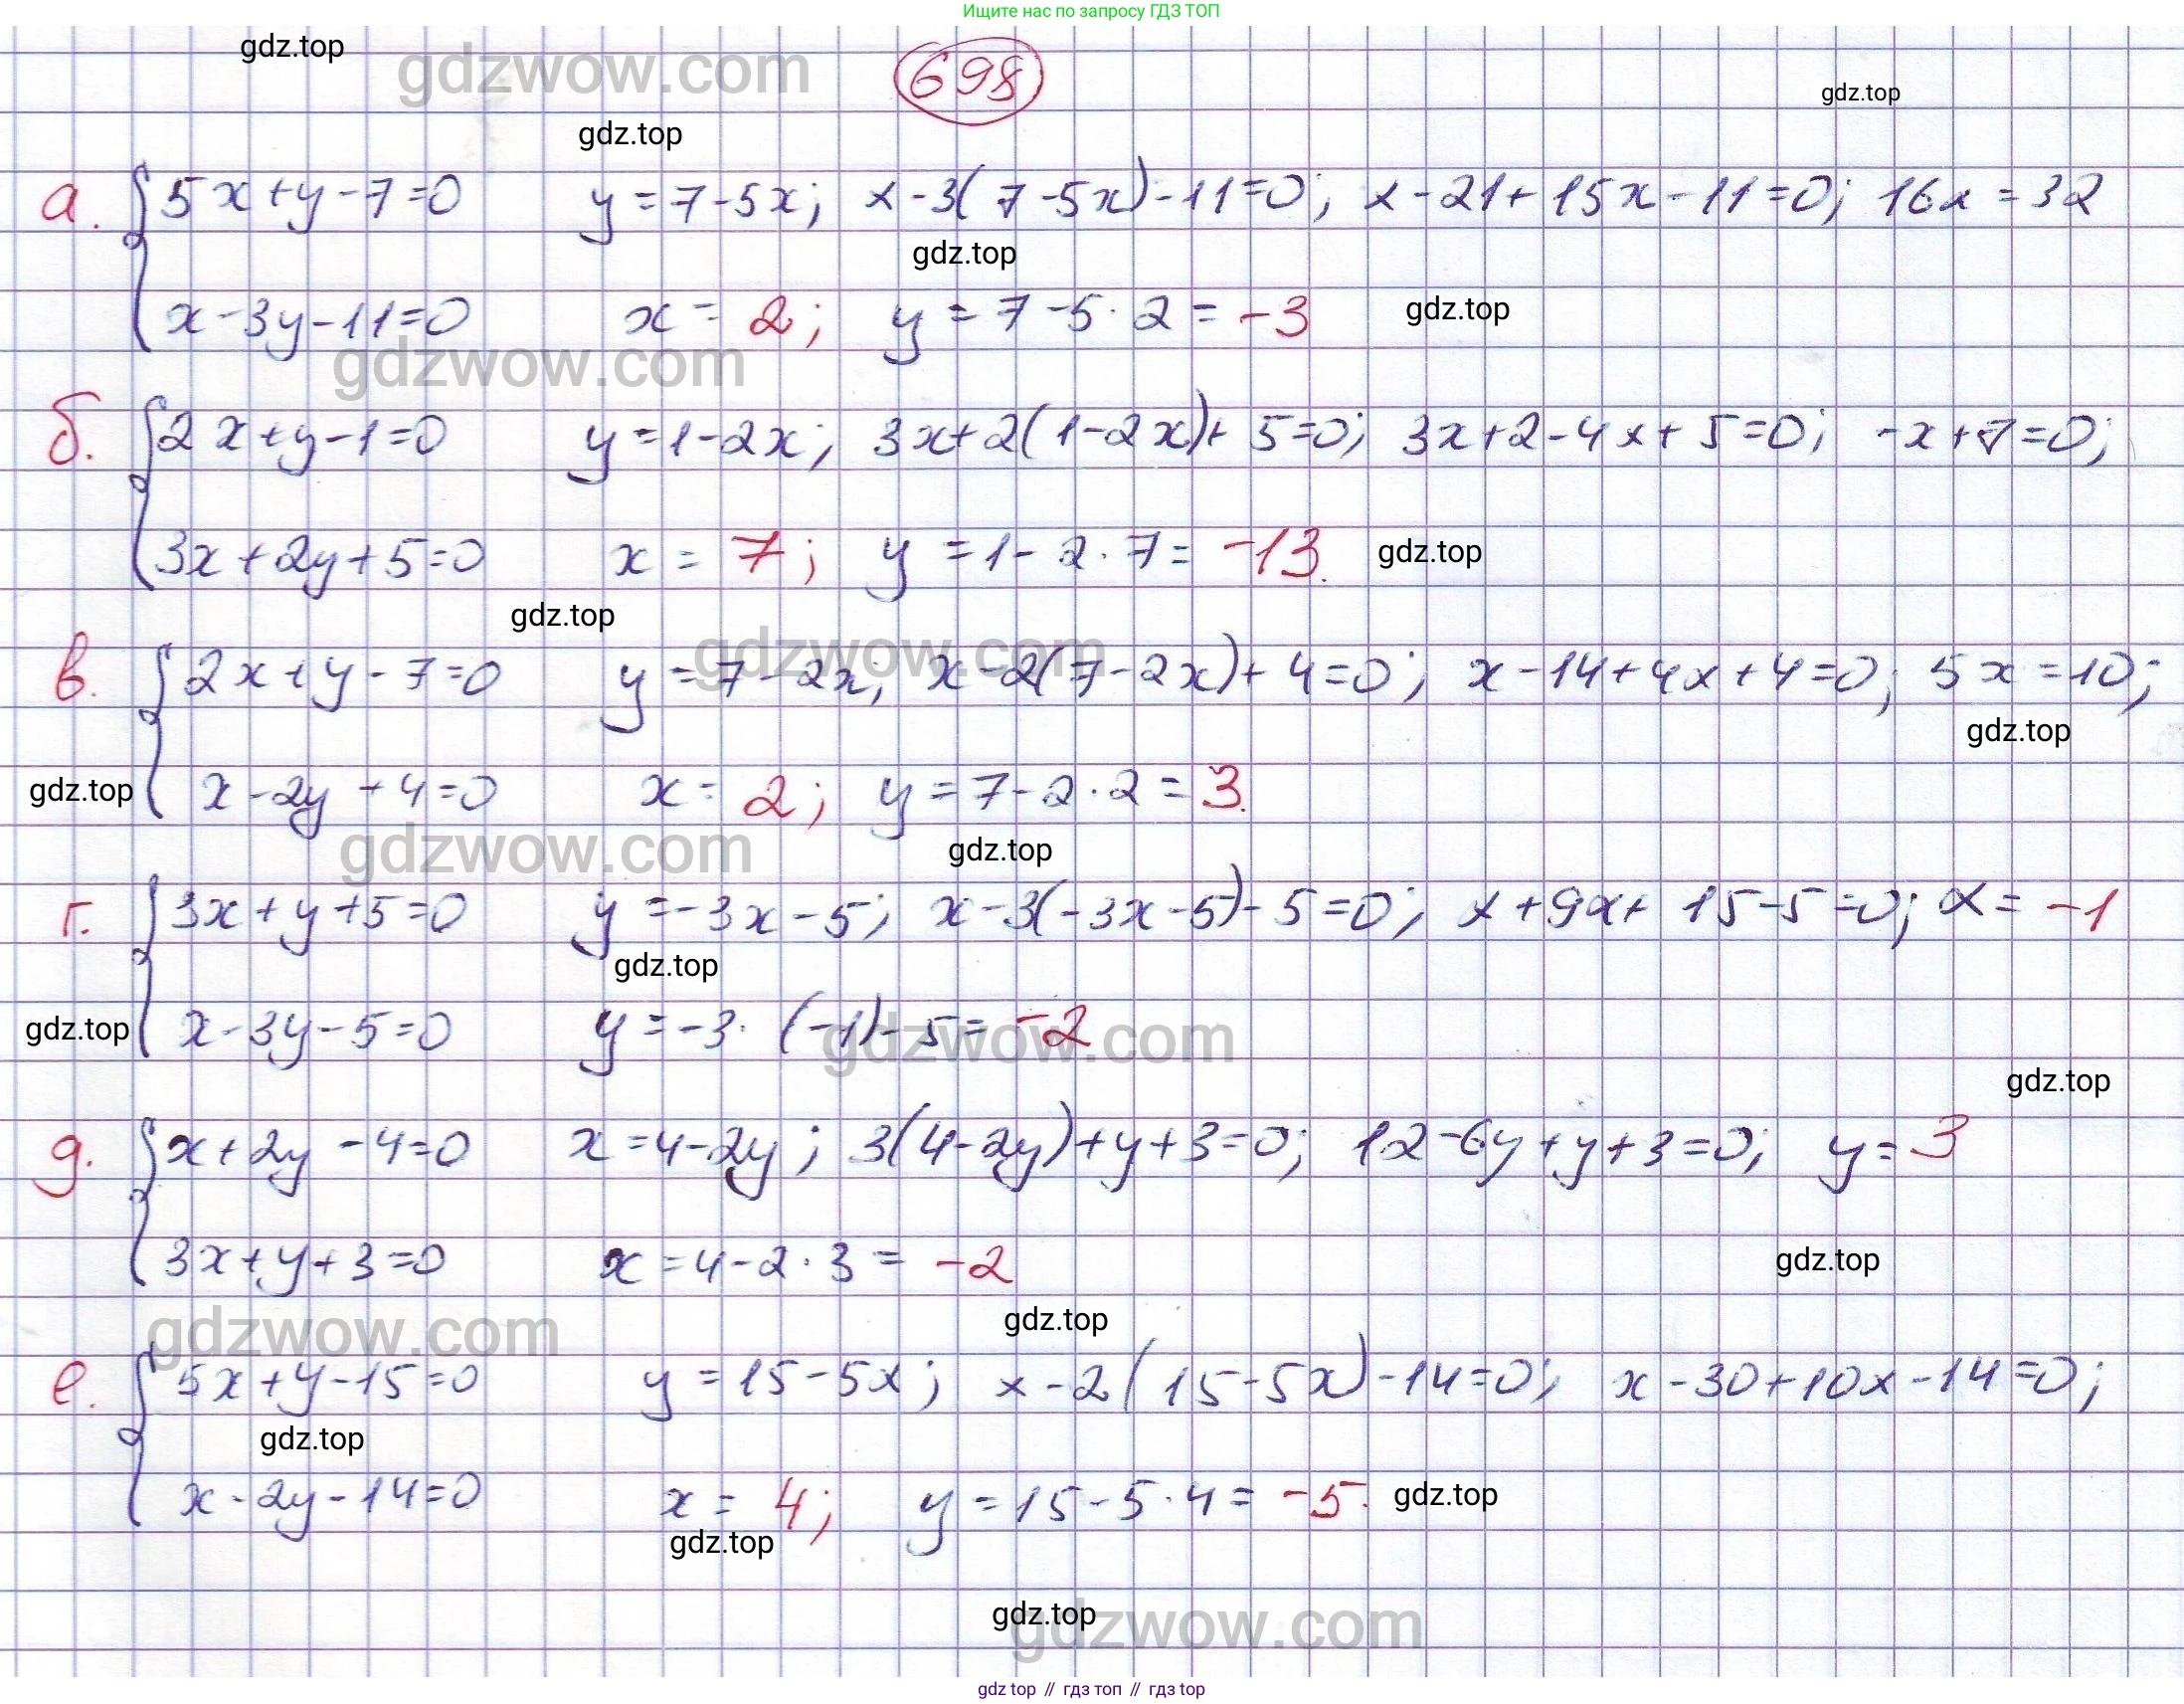 Ищите нас по запросу ГДЗ ТОП
gdz.top
gdzwow.com
698
gdz.top
gdz.top
а. 5x+y-7=0 y=7-5x; x-3(7-5x)-11=0; x-21+15x-11=0; 16x=32
gdz.top
x-3y-11=0 x=2; y=7-5·2=-3 gdz.top
gdzwow.com
б. 2x+y-1=0 y=1-2x; 3x+2(1-2x)+5=0; 3x+2-4x+5=0; -x+7=0;
3x+2y+5=0 x=7; y=1-2·7=-13. gdz.top
gdz.top
gdzwow.com
в. 2x+y-7=0 y=7-2x; x-2(7-2x)+4=0; x-14+4x+4=0; 5x=10;
gdz.top
gdz.top x-2y+4=0 x=2; y=7-2·2=3.
gdzwow.com gdz.top
г. 3x+y+5=0 y=-3x-5; x-3(-3x-5)-5=0; x+9x+15-5=0; x=-1
gdz.top
gdz.top x-3y-5=0 y=-3·(-1)-5=-2
gdzwow.com
gdz.top
д. x+2y-4=0 x=4-2y; 3(4-2y)+y+3=0; 12-6y+y+3=0; y=3
3x+y+3=0 x=4-2·3=-2 gdz.top
gdzwow.com gdz.top
е. 5x+y-15=0 y=15-5x; x-2(15-5x)-14=0; x-30+10x-14=0;
gdz.top
x-2y-14=0 x=4; y=15-5·4=-5. gdz.top
gdz.top
gdz.top
gdzwow.com
gdz top // гдз топ // гдз top